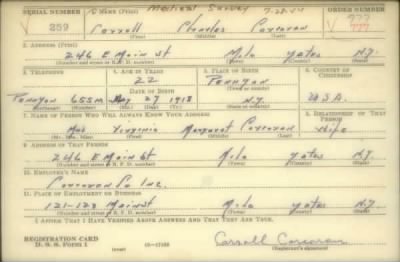 SERIAL NUMBER 1. NAME (Print) Medical Survey 7-28-44 ORDER NUMBER
259 Carroll Charles Corcoran 777
(First) (Middle) (Last) 777
2. ADDRESS (Print)
246 E Main St Milo Yates N.Y.
(Number and street or R. F. D. number) (Town) (County) (State)
3. TELEPHONE 4. AGE IN YEARS 5. PLACE OF BIRTH 6. COUNTRY OF CITIZENSHIP
22 Penn Yan
DATE OF BIRTH (Town or county)
Penn Yan 655M May 27 1918 N.Y. USA
(Exchange) (Number) (Mo.) (Day) (Yr.) (State or country)
7. NAME OF PERSON WHO WILL ALWAYS KNOW YOUR ADDRESS 8. RELATIONSHIP OF THAT PERSON
Mrs Virginia Margaret Corcoran Wife
(Mr., Mrs., Miss) (First) (Middle) (Last)
9. ADDRESS OF THAT PERSON
246 E Main St Milo Yates N.Y.
(Number and street or R. F. D. number) (Town) (County) (State)
10. EMPLOYER'S NAME
Corcoran Co Inc.
11. PLACE OF EMPLOYMENT OR BUSINESS
121-123 Main St Milo Yates N.Y.
(Number and street or R. F. D. number) (Town) (County) (State)
I AFFIRM THAT I HAVE VERIFIED ABOVE ANSWERS AND THAT THEY ARE TRUE.
REGISTRATION CARD
D. S. S. Form 1 (over) 16-17105 Carroll Corcoran
(Registrant's signature)